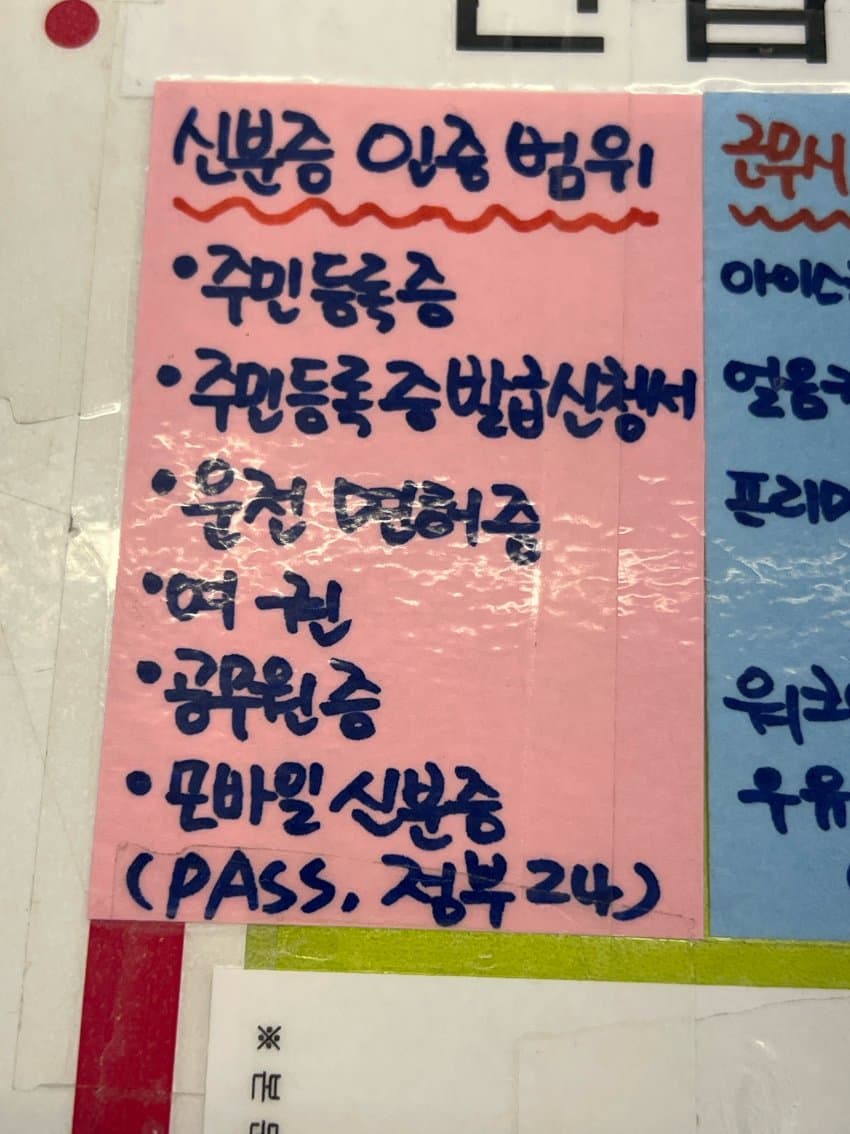 신분증 인증 범위
• 주민등록증
• 주민등록증발급신청서
• 운전 면허증
• 여 권
• 공무원증
• 모바일 신분증
(PASS, 정부24)
근무시
아이스
얼음
프리미
워크
우유
※